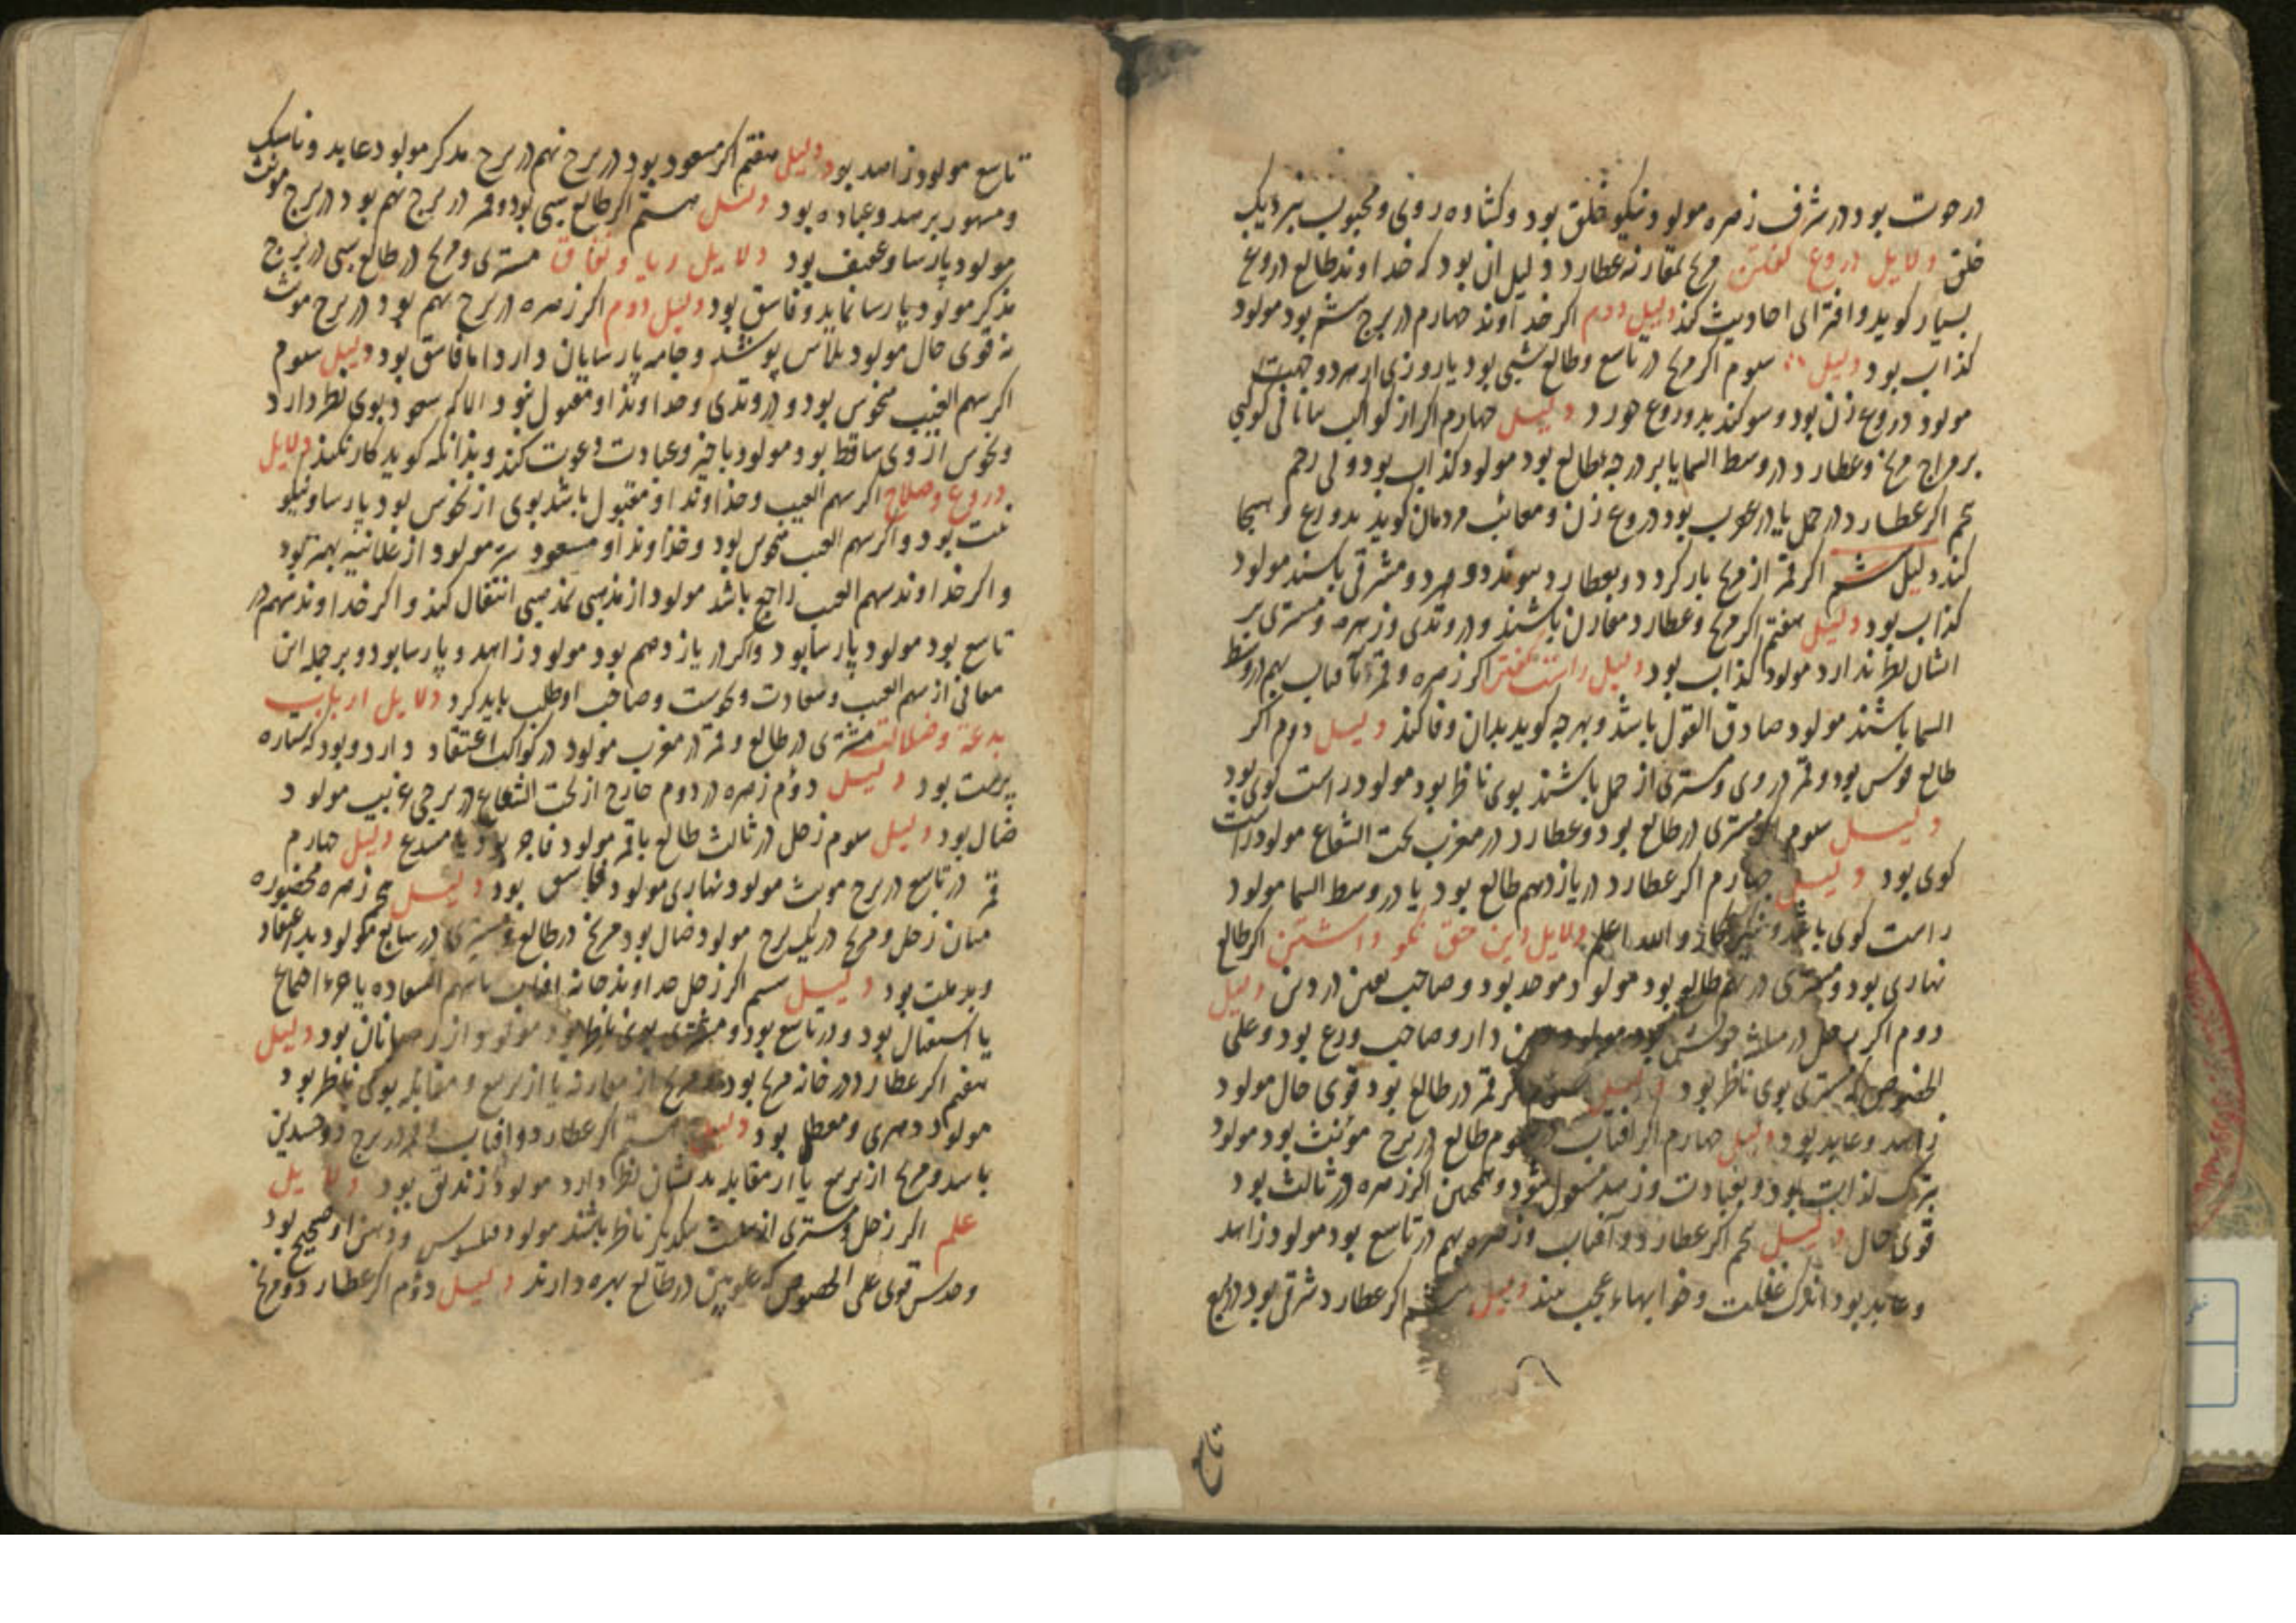 در حوت بود در شرف زهره مولود نیکو خلق بود و کشاده روی و محبوب بنزدیک
خلق دلایل دروغ گفتن مریخ بمقارنه عطارد دلیل ان بود که خداوند طالع دروغ
بسیار کوید و افترای احادیث کند دلیل دوم اکر خداوند چهارم در برج ششم بود مولود
کذاب بود دلیل سوم اکر مریخ در تاسع و طالع شبی بود یا روزی از هر دو جهت
مولود دروغ زن بود و سوکند بدروغ خورد دلیل چهارم اکر از کواکب بیابانی کوکبی
بر مزاج مریخ و عطارد در وسط السما یا بر درجه طالع بود مولود کذاب بود
اکر عطارد در حمل یا در عقرب بود دروغ زن و معائب مردمان کوید بدروغ و هجا
کند دلیل ششم اکر قمر از مریخ باز کردد و بعطارد پیوندد و هر دو مشرقی باشند مولود
کذاب بود دلیل هفتم اکر مریخ و عطارد مقارن باشند در وتدی و زهره و مشتری بر
ایشان نظر ندارد مولود کذاب بود دلیل راست گفتن اکر زهره و قمر و آفتاب بهم در وسط
السما باشند مولود صادق القول باشد و بهرچه کوید بدان وفا کند دلیل دوم اکر
طالع قوس بود و قمر در وی و مشتری از حمل باشند بوی ناظر بود مولود راست کوی بود
دلیل سوم اکر مشتری در طالع بود و عطارد در مغرب تحت الشعاع مولود راست
کوی بود دلیل چهارم اکر عطارد در یازدهم طالع بود یا در وسط السما مولود
راست کوی باشد و والله اعلم دلایل دین حق نکو داشتن اکر طالع
نهاری بود و مشتری در نهم طالع بود مولود موحد بود و صاحب یقین در دین دلیل
دوم اکر زحل در مثلثه خویش بود مولود دین دار و صاحب ورع بود و علی
الخصوص که مشتری بوی ناظر بود دلیل سوم اکر قمر در طالع بود قوی حال مولود
زاهد و عابد بود دلیل چهارم اکر افتاب در سوم طالع در برج مؤنث بود مولود
بترک لذات بکود و بعبادت و زهد مشغول شود و همچنین اکر زهره در ثالث بود
قوی حال دلیل پنجم اکر عطارد و آفتاب و زهره بهم در تاسع بود مولود زاهد
و عابد بود اندک غفلت و خوابهاء عجب بیند دلیل ششم اکر عطارد شرقی بود در برج
تاسع
تاسع مولود زاهد بود دلیل هفتم اکر مسعود بود در برج نهم در برج مذکر مولود عابد و ناسک
و مشهور بزهد و عباده بود دلیل هشتم اکر طالع شبی بود و قمر در برج نهم بود در برج مونث
مولود پارسا و عفیف بود دلایل ریا و نفاق مشتری و مریخ در طالع شبی در برج
مذکر مولود پارسا نماید و فاسق بود دلیل دوم اکر زهره در برج نهم بود در برج مونث
نه قوی حال مولود پلاس پوشد و جامه پارسایان دارد اما فاسق بود دلیل سوم
اکر سهم الغیب منحوس بود و در وتدی و خداوند او مقبول بود الا که سعود بوی نظر دارد
و نحوس از وی ساقط بود مولود باخیر و عبادت دعوت کند و بدانکه کوید کار نکند دلایل
دروغ و صلاح اکر سهم الغیب و خداوند او مقبول باشد بوی از نحوس بود پارسا و نیکو
نیت بود و اکر سهم الغیب منحوس بود و خداوند او مسعود سر مولود از علانیه بهتر بود
و اکر خداوند سهم الغیب راجع باشد مولود از مذهبی بمذهبی انتقال کند و اکر خداوند سهم در
تاسع بود مولود پارسا بود و اکر در یازدهم بود مولود زاهد و پارسا بود و بر جمله این
معانی از سهم الغیب و سعادت و نحوست و صاحب او طلب باید کرد دلایل ارباب
بدعة و ضلالت مشتری در طالع و قمر در مغرب مولود در کواکب اعتقاد دارد و بود که ستاره
پرست بود دلیل دوم زهره در دوم خارج از تحت الشعاع در برجی غریب مولود
ضال بود دلیل سوم زحل در ثالث طالع باقمر مولود فاجر بود یا مبدع دلیل چهارم
قمر در تاسع در برج مونث مولود نهاری مولود فاسق بود دلیل پنجم زهره محصوره
میان زحل و مریخ در یک برج مولود ضال بود مریخ در طالع و مشتری در سابع مولود بد اعتقاد
و بد ملت بود دلیل ششم اکر زحل خداوند خانه افتاب یا سهم السعاده یا جزء اجتماع
یا استقبال بود و در تاسع بود و مشتری بوی ناظر بود مولود از رهبانان بود دلیل
هفتم اکر عطارد در خانه مریخ بود و مریخ از مقارنه یا از تربیع و مقابله بوی ناظر بود
مولود دهری و معطل بود دلیل هشتم اکر عطارد و افتاب و قمر در برج ذوجسدین
باشد و مریخ از تربیع یا از مقابله بدیشان نظر دارد مولود زندیق بود دلایل
علم اکر زحل و مشتری از تثلیث بیکدیکر ناظر باشند مولود فیلسوف و ذهن او صحیح بود
و حدس قوی علی الخصوص که علویین در طالع بهره دارند دلیل دوم اکر عطارد و مریخ